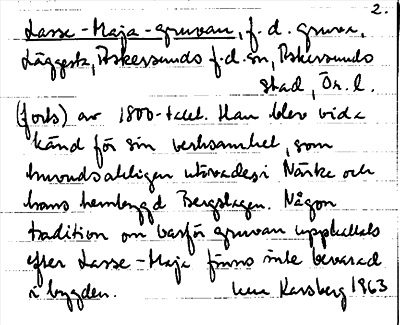 2.
Lasse-Maja-gruvan, f.d. gruva,
Läggesta, Askersunds f.d. sn, Askersunds
stad, Ör. l.
(forts) av 1800-talet. Han blev vida
känd för sin verksamhet, som
huvudsakligen utövades i Närke och
hans hembygd Bergslagen. Någon
tradition om varför gruvan uppkallats
efter Lasse-Maja finns inte bevarad
i bygden. Karsberg 1963